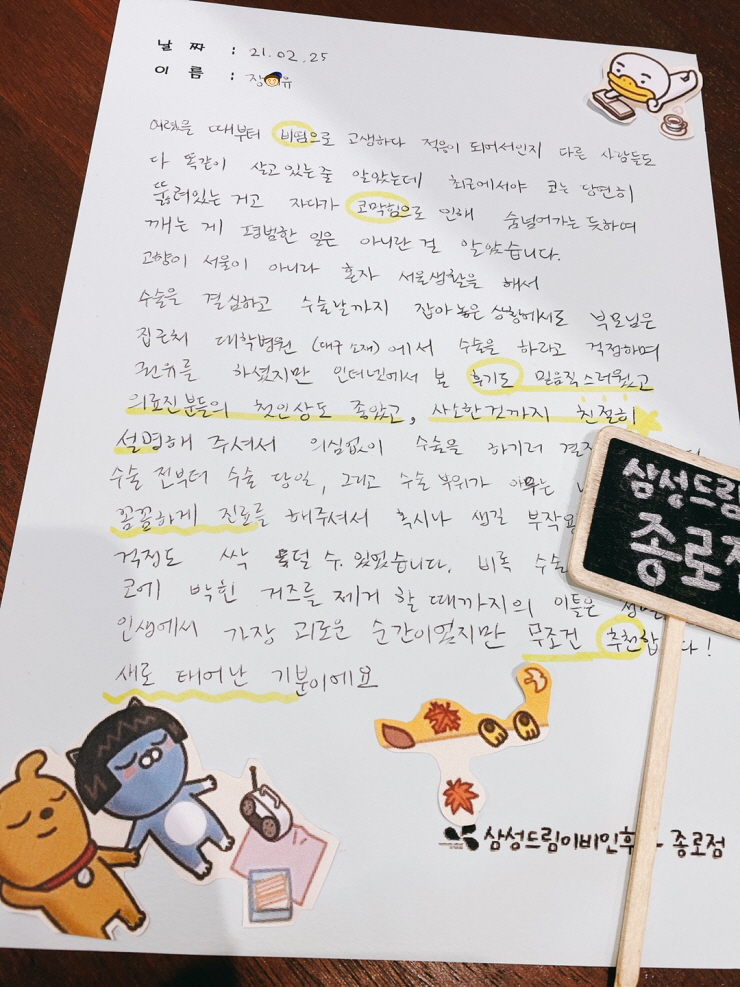 날 짜 : 21.02.25
이 름 : 장 유
어렸을 때부터 비염으로 고생하다 적응이 되어서인지 다른 사람들도
다 똑같이 살고 있는줄 알았는데 최근에서야 코는 당연히
뚫려있는 거고 자다가 코막힘으로 인해 숨넘어가는 듯하여
깨는 게 평범한 일은 아니란 걸 알았습니다.
고향이 서울이 아니라 혼자 서울생활을 해서
수술을 결심하고 수술날까지 잡아 놓은 상황에서도 부모님은
집근처 대학병원 (대구 소재)에서 수술을 하라고 걱정하며
권유를 하셨지만 인터넷에서 본 후기도 믿음직스러웠고
의료진분들의 첫인상도 좋았고, 사소한것까지 친절히
설명해 주셔서 의심없이 수술을 하기로
수술 전부터 수술 당일, 그리고 수술 부위가 아무는
꼼꼼하게 진료를 해주셔서 혹시나 생길 부작용
걱정도 싹 덜 수 있었습니다. 비록 수술
코에 박힌 거즈를 제거 할 때까지의 이틀은
인생에서 가장 괴로운 순간이었지만 무조건 추천합니다!
새로 태어난 기분이에요
삼성드림
종로점
삼성드림이비인후과 종로점